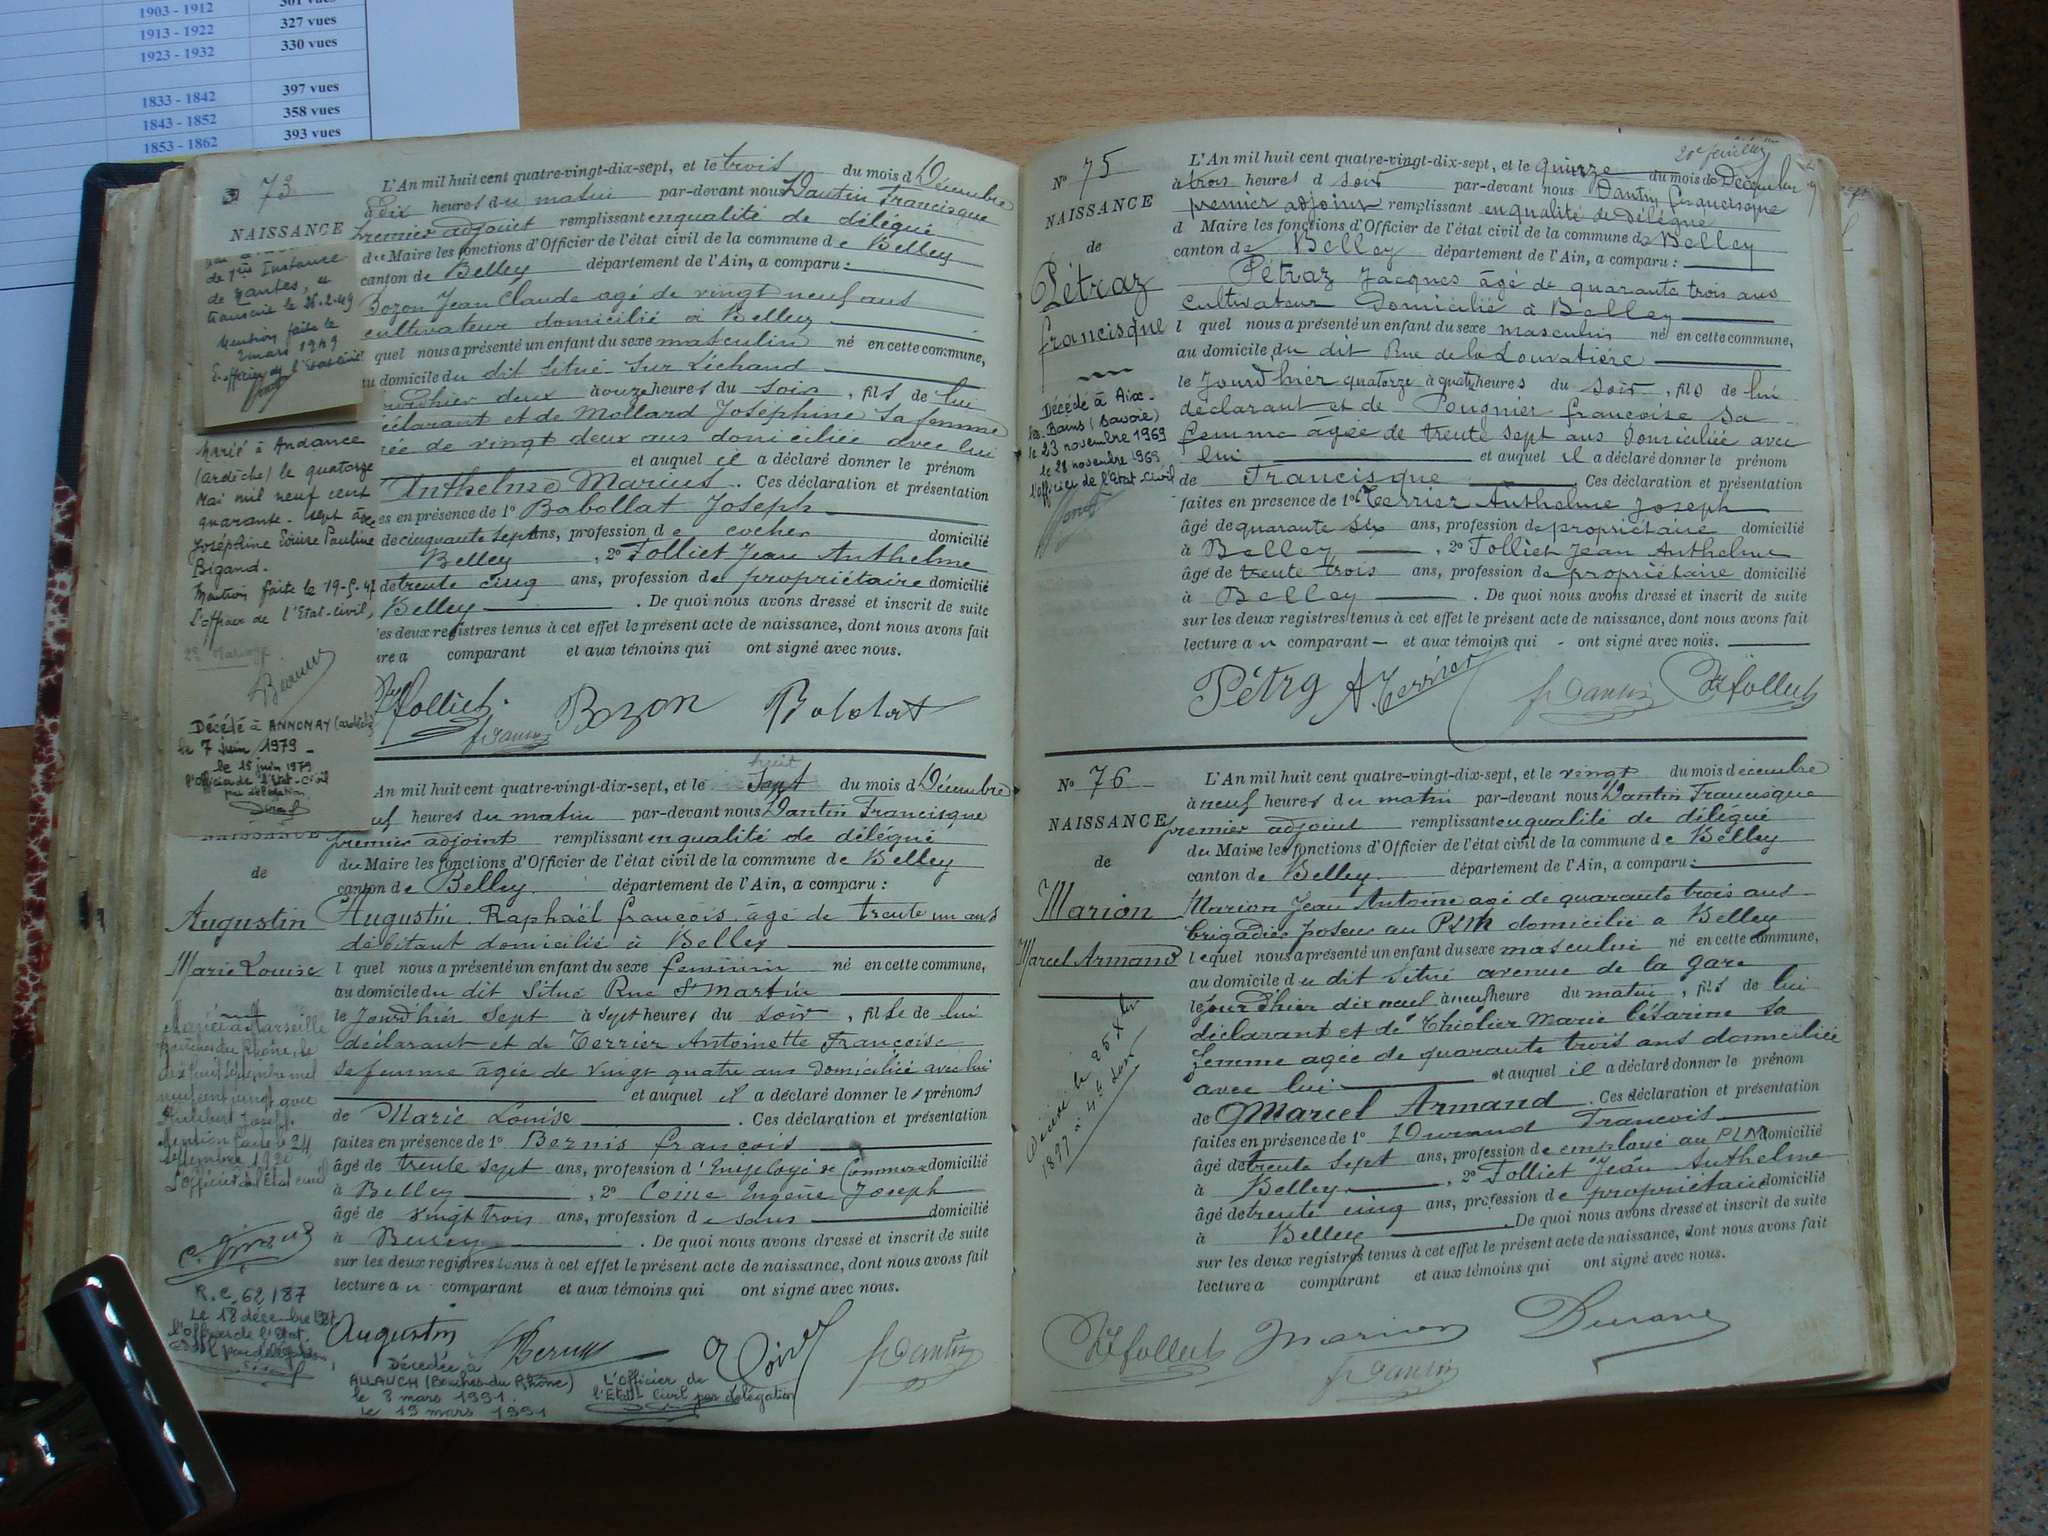 1903 - 1912 301 vues
1913 - 1922 327 vues
1923 - 1932 330 vues
1833 - 1842 397 vues
1843 - 1852 358 vues
1853 - 1862 393 vues
73
NAISSANCE
de 1ère Instance
de Nantes, et
transcrit le 26-2-49
Mention faite le
2 mars 1949
L'officier de l'Etat Civil
Marié à Andance
(Ardèche) le quatorze
Mai mil neuf cent
quarante-sept avec
Joséphine Louise Pauline
Bigand.
Mention faite le 19-5-47
L'officier de l'Etat-Civil,
2e Mariage
Décédé à ANNONAY (Ardèche)
le 7 juin 1979 -
le 15 juin 1979
l'Officier de l'état-Civil
par délégation
L'An mil huit cent quatre-vingt-dix-sept, et le trois du mois de Décembre
à dix heures du matin par-devant nous Dantin Francisque
premier adjoint remplissant en qualité de délégué
du Maire les fonctions d'Officier de l'état civil de la commune de Belley
canton de Belley département de l'Ain, a comparu :
Bozon Jean Claude agé de vingt neuf ans
cultivateur domicilié à Belley
quel nous a présenté un enfant du sexe masculin né en cette commune,
au domicile du dit situé sur Léchaud
jourd'hier deux à onze heures du soir, fils de lui
déclarant et de Mollard Joséphine sa femme
agée de vingt deux ans domiciliée avec lui
et auquel il a déclaré donner le prénom
Anthelme Marius. Ces déclaration et présentation
es en présence de 1o Babollat Joseph
de cinquante sept ans, profession de cocher domicilié
Belley, 2o Folliet Jean Anthelme
de trente cinq ans, profession de propriétaire domicilié
Belley. De quoi nous avons dressé et inscrit de suite
les deux registres tenus à cet effet le présent acte de naissance, dont nous avons fait
ure a comparant et aux témoins qui ont signé avec nous.
Folliet. fr Dantin Bozon Babolat
An mil huit cent quatre-vingt-dix-sept, et le Sept huit du mois de Décembre
neuf heures du matin par-devant nous Dantin Francisque
premier adjoint remplissant en qualité de délégué
du Maire les fonctions d'Officier de l'état civil de la commune de Belley
canton de Belley département de l'Ain, a comparu :
NAISSANCE
de
Augustin
Marie Louise
Augustin Raphaël françois âgé de trente un ans
débitant domicilié à Belley
l quel nous a présenté un enfant du sexe féminin né en cette commune,
au domicile du dit situé Rue St Martin
le jourd'hier sept à sept heures du soir, fille de lui
déclarant et de Terrier Antoinette Françoise
sa femme agée de vingt quatre ans domiciliée avec lui
et auquel il a déclaré donner les prénoms
de Marie Louise. Ces déclaration et présentation
faites en présence de 1o Bernis françois
âgé de trente sept ans, profession d'Employé de Commerce domicilié
à Belley, 2o Eugène Joseph
âgé de vingt trois ans, profession de sans domicilié
à Belley. De quoi nous avons dressé et inscrit de suite
sur les deux registres tenus à cet effet le présent acte de naissance, dont nous avons fait
lecture au comparant et aux témoins qui ont signé avec nous.
Mariée à Marseille
Bouches du Rhône, le
Mention faite le 24
septembre 1920
L'Officier de l'Etat civil
R.C. 62/87
Le 18 décembre 1987
l'officier de l'Etat-
Civil par délégation,
Augustin Bernis fr Dantin
Décédée à
ALLAUCH (Bouches-du-Rhône)
le 8 mars 1991.
le 19 mars 1991
L'Officier de
l'Etat Civil par délégation
20e feuillet
No 75
NAISSANCE
de
Pétraz
francisque
Décédé à Aix-
les-Bains (Savoie)
le 23 novembre 1969
le 28 novembre 1969
l'officier de l'Etat-Civil
L'An mil huit cent quatre-vingt-dix-sept, et le quinze du mois de Décembre
à trois heures d soir par-devant nous Dantin francisque
premier adjoint remplissant en qualité de Délégué
d Maire les fonctions d'Officier de l'état civil de la commune de Belley
canton de Belley département de l'Ain, a comparu :
Pétraz Jacques âgé de quarante trois ans
cultivateur Domicilié à Belley
l quel nous a présenté un enfant du sexe masculin né en cette commune,
au domicile du dit Rue de la Louvatière
le jourd'hier quatorze à quatre heures du soir, fils de lui
déclarant et de Pougnier françoise sa
femme agée de trente sept ans Domiciliée avec
lui et auquel il a déclaré donner le prénom
de Francisque. Ces déclaration et présentation
faites en presence de 1o Terrier Anthelme Joseph
âgé de quarante six ans, profession de propriétaire domicilié
à Belley, 2o Folliet Jean Anthelme
âgé de trente trois ans, profession de propriétaire domicilié
à Belley. De quoi nous avons dressé et inscrit de suite
sur les deux registres tenus à cet effet le présent acte de naissance, dont nous avons fait
lecture a u comparant - et aux témoins qui - ont signé avec nous.
Pétrg A. Terrier fr Dantin Folliet
No 76
NAISSANCE
de
Marion
Marcel Armand
Décédé le 25 Xbre
1897 à 4h soir
L'An mil huit cent quatre-vingt-dix-sept, et le vingt du mois décembre
à neuf heures du matin par-devant nous Dantin Francisque
premier adjoint remplissant en qualité de délégué
du Maire les fonctions d'Officier de l'état civil de la commune de Belley
canton de Belley département de l'Ain, a comparu :
Marion Jean Antoine agé de quarante trois ans
brigadier poseur au PLM domicilié a Belley
lequel nous a présenté un enfant du sexe masculin né en cette commune,
au domicile du dit situé avenue de la gare
le jour d'hier dix neuf à neuf heure du matin, fils de lui
déclarant et de Thiolier Marie Césarine sa
femme agée de quarante trois ans domiciliée
avec lui et auquel il a déclaré donner le prénom
de Marcel Armand. Ces déclaration et présentation
faites en présence de 1o Durand Francois
âgé de trente sept ans, profession de employé au PLM domicilié
à Belley, 2o Folliet Jean Anthelme
âgé de trente cinq ans, profession de propriétaire domicilié
à Belley. De quoi nous avons dressé et inscrit de suite
sur les deux registres tenus à cet effet le présent acte de naissance, dont nous avons fait
lecture a comparant et aux témoins qui ont signé avec nous.
Folliet Marion fr Dantin Durand